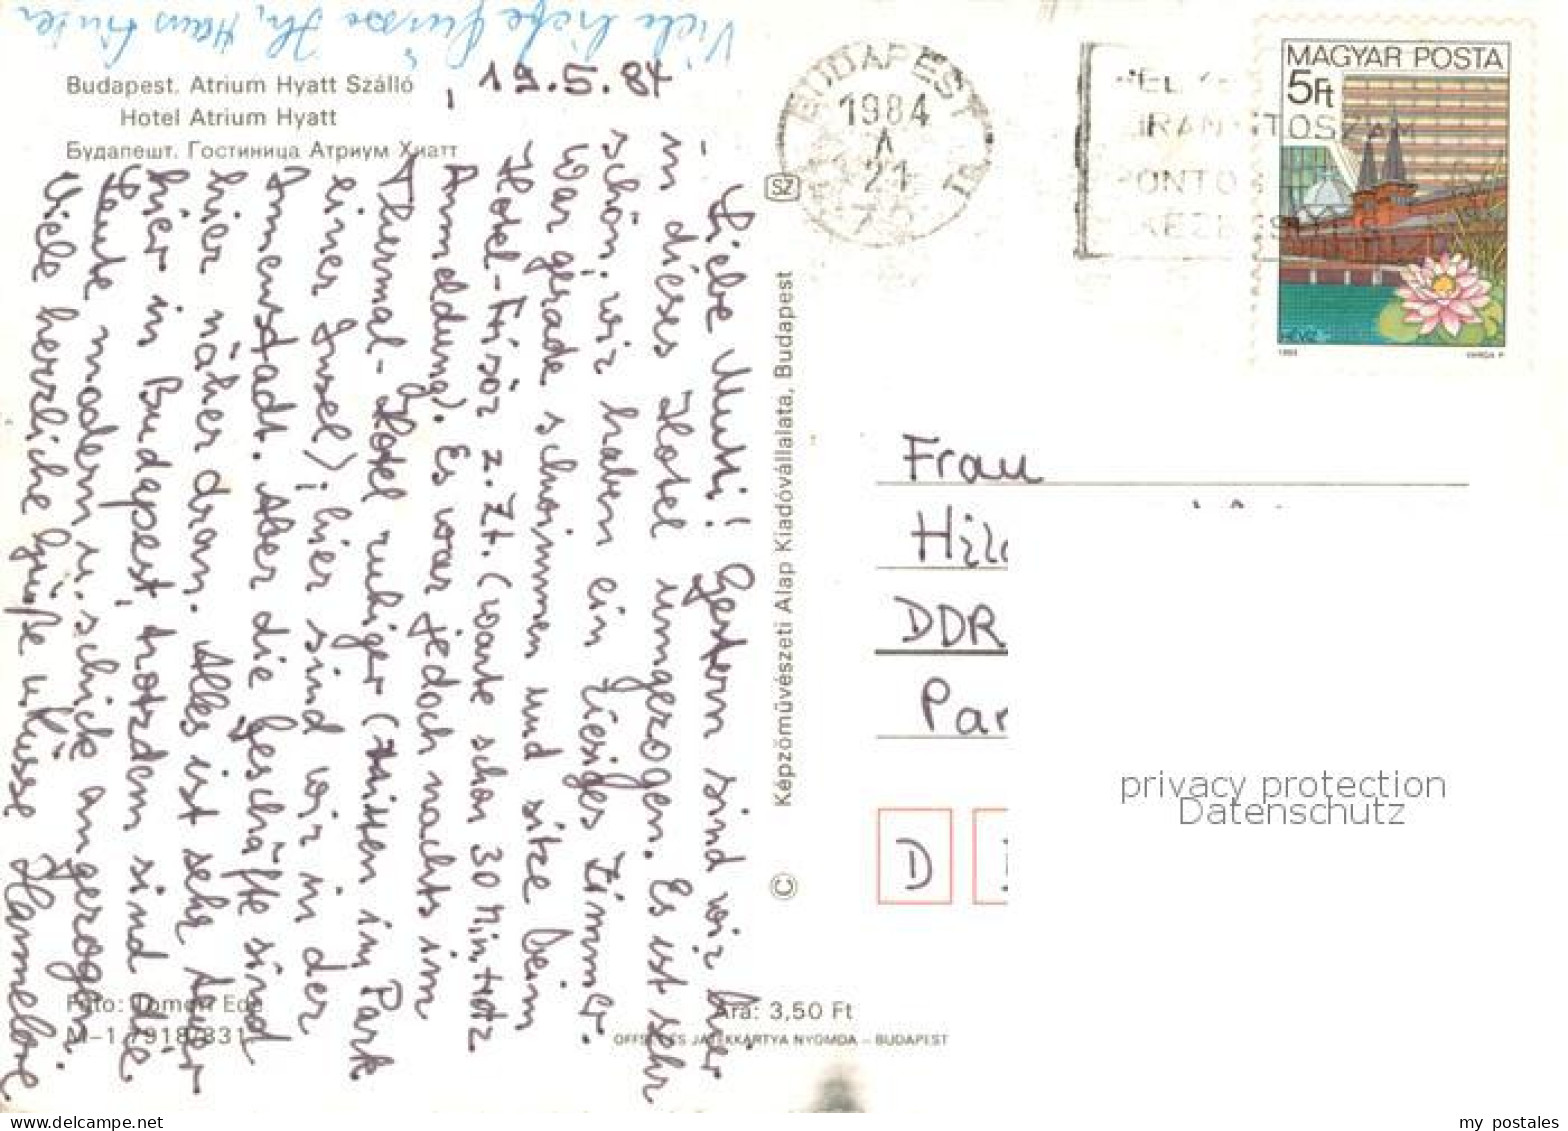 Viele liebe Grüsse Ihr Hans
Budapest. Atrium Hyatt Szálló
Hotel Atrium Hyatt
Будапешт. Гостиница Атриум Хиатт
19.5.84
Liebe Mutti! Gestern sind wir hier
in dieses Hotel umgezogen. Es ist sehr
schön, wir haben ein riesiges Zimmer.
War gerade schwimmen und sitze beim
Hotel-Frisör z. Zt. (warte schon 30 Min. trotz
Anmeldung). Es war jedoch nachts im
Thermal-Hotel ruhiger (mitten im Park
einer Insel); hier sind wir in der
Innenstadt. Aber die Geschäfte sind
hier näher dran. Alles ist sehr teuer
hier in Budapest, trotzdem sind die
Leute modern u. schick angezogen.
Viele herzliche Grüße u. Küsse Hannelore
Fotó: Tomori Ede
M-1-79187831
Képzőművészeti Alap Kiadóvállalata, Budapest
©
SZ
Ára: 3,50 Ft
OFFSET ÉS JÁTÉKKÁRTYA NYOMDA – BUDAPEST
BUDAPEST
1984
A
21
72
IRÁNYÍTÓSZÁM
PONTOS
MAGYAR POSTA
5Ft
HÉVÍZ
1983
VARGA P.
Frau
Hil
DDR
Par
D
privacy protection
Datenschutz
my postales